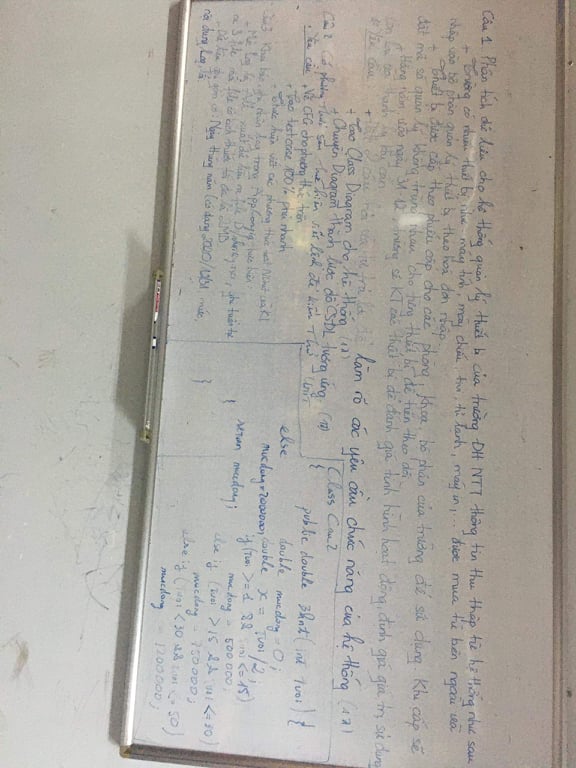 Câu 1. Phân tích dữ liệu cho hệ thống quản lý thiết bị của trường ĐH NTT thông tin thu thập từ hệ thống như sau
+ Trường có nhiều thiết bị như: máy tính, máy chiếu, tivi, tủ lạnh, máy in, ... được mua từ bên ngoài và
nhập vào bộ phận quản lý thiết bị theo hoá đơn nhập.
+ Thiết bị được cấp theo phiếu cấp cho các phòng, khoa, bộ phận của trường để sử dụng. Khi cấp sẽ
đặt mã số quản lý không trùng nhau cho từng thiết bị để tiện theo dõi
+ Hàng năm, vào ngày 31-12, trường sẽ KT các thiết bị để đánh giá tình hình hoạt động, định giá giá trị sử dụng
còn lại và thanh lý
* Yêu cầu: câu hỏi và tự trả lời để làm rõ các yêu cầu chức năng của hệ thống (1đ)
+ Tạo Class Diagram cho hệ thống (1đ)
+ Chuyển Diagram thành lược đồ CSDL tương ứng (1đ)
Câu 2. Có phương thức sau viết lệnh để kiểm thử
Yêu cầu: + Vẽ CFG cho phương thức trên
+ Tạo testcase 100% phủ nhánh
+ Thực hiện viết các phương thức test
Câu 3. Khai báo ghi nhận log trong AppConfig thực hiện:
+ Mức log là ALL xuất dữ liệu ra file D:/
3 file mỗi file có kích thước tối đa là 2MB
+ Dữ liệu gồm có: Ngày tháng năm (có dạng 2020/12/31 mức,
nội dung log,
Class Cau2
{
public double (int Tuoi) {
double mucdong = 0;
double x = Tuoi/2;
if (Tuoi >= 1 && Tuoi <= 15)
mucdong = 500.000;
else if (Tuoi > 15 && Tuoi <= 30)
mucdong = 750000;
else if (Tuoi < 30 && Tuoi <= 50)
mucdong = 1200000;
else
mucdong = 2000000;
return mucdong;
}
}